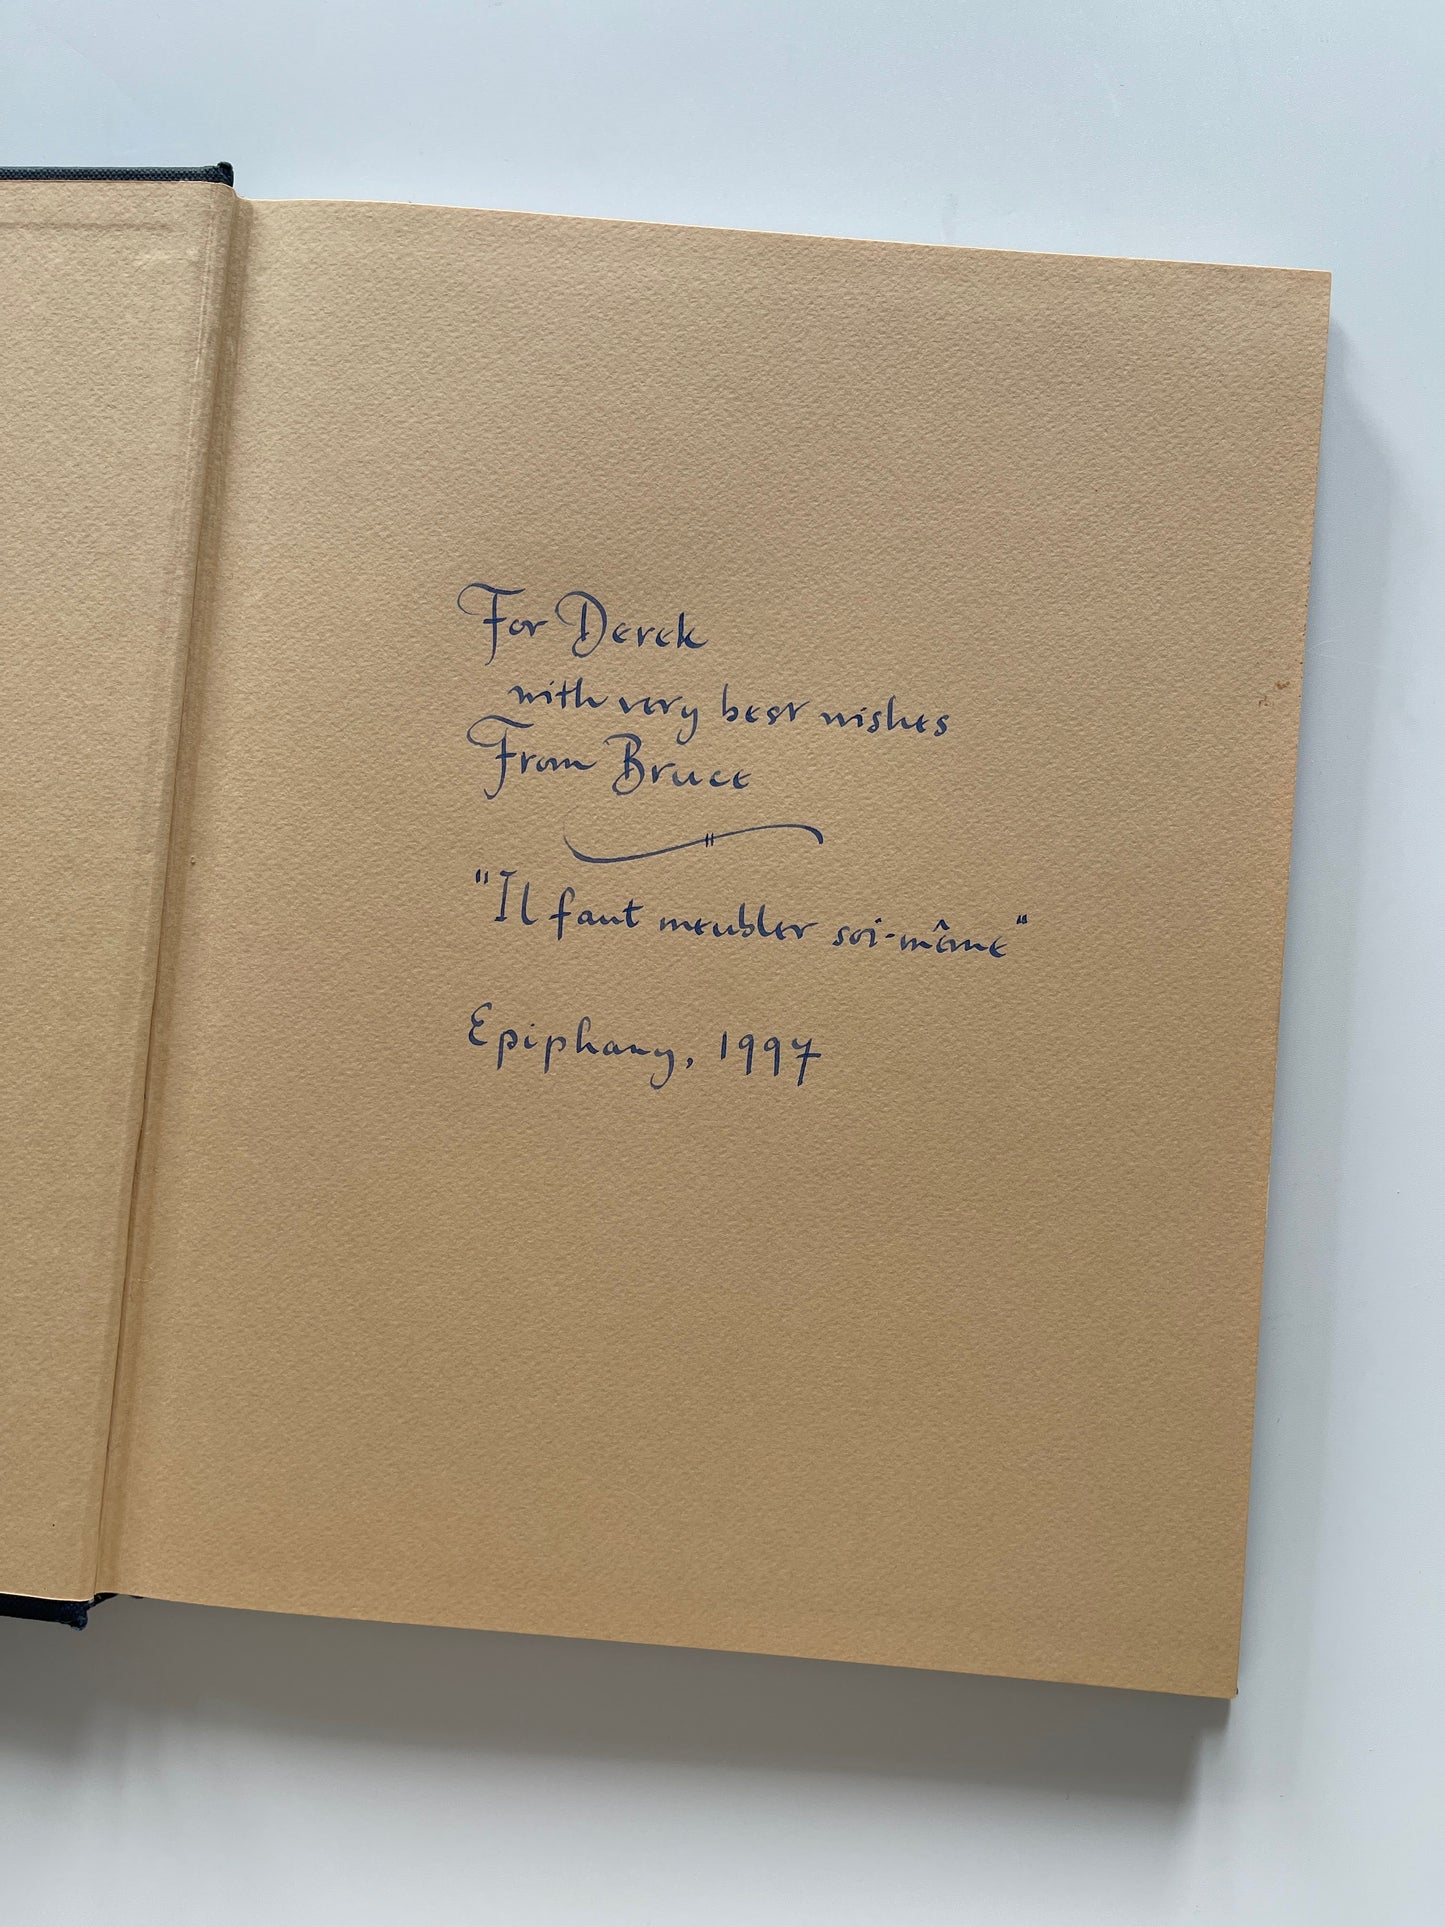 For Derek
with very best wishes
From Bruce
"Il faut meubler soi-même"
Epiphany, 1997